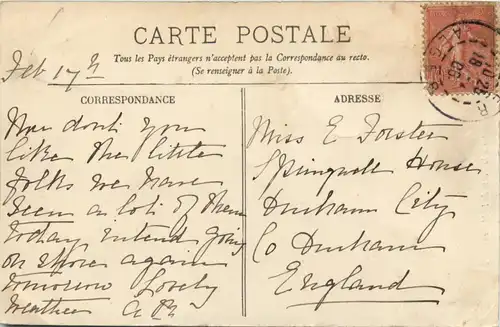 CARTE POSTALE
Tous les Pays étrangers n'acceptent pas la Correspondance au recto.
(Se renseigner à la Poste).
Feb 17th
CORRESPONDANCE
Now dont you
like the little
folks we have
seen a lot of them
today intend going
on shore again
tomorrow Lovely
weather
ADRESSE
Miss E Forster
Springwell House
Durham City
Co Durham
England